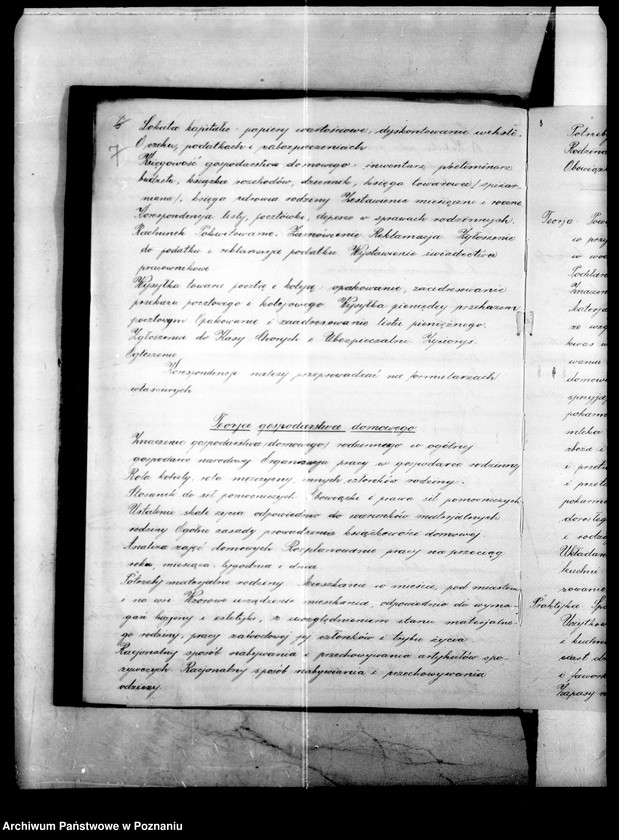 7
Lokata kapitału: papiery wartościowe, dyskontowanie weksli.
O czeku, podatkach i zabezpieczeniach
Księgowość gospodarstwa domowego: inwentarz, preliminarz
budżetu, książka rozchodów, dziennik, księga towarowa (spiżar-
niana), księga zdrowia rodziny Zestawienie miesięczne i roczne
Korespondencja listy, pocztówki, depesze w sprawach rodzinnych.
Rachunek Pokwitowanie. Zamówienie Reklamacja Zgłoszenie
do podatku i reklamacja podatku Wystawienie świadectwa
pracownikowi
Wysyłka towaru pocztą i koleją: opakowanie, zaadresowanie
przekazu pocztowego i kolejowego Wysyłka pieniędzy przekazem
pocztowym Opakowanie i zaadresowanie listu pieniężnego.
Zgłoszenie do Kasy Chorych i Ubezpieczalni Życiorys.
Ogłoszenie
Korespondencję należy przeprowadzać na formularzach
właściwych
Teorja gospodarstwa domowego
Znaczenie gospodarstwa (domowego) rodzinnego w ogólnej
gospodarce narodowej Organizacja pracy w gospodarce rodzinnej
Rola kobiety, rola mężczyzny, innych członków rodziny.
Stosunek do sił pomocniczych Obowiązki i prawa sił pomocniczych
Ustalenie skali życia odpowiednio do warunków materjalnych
rodziny Ogólne zasady prowadzenia książkowości domowej.
Analiza zajęć domowych Rozplanowanie pracy na przeciąg
roku, miesiąca, tygodnia i dnia
Potrzeby materjalne rodziny Mieszkanie w mieście, pod miastem
i na wsi Wzorowe urządzenie mieszkania, odpowiednio do wyma-
gań higjeny i estetyki, z uwzględnieniem stanu materjalne-
go rodziny, pracy zawodowej jej członków i trybu życia
Racjonalny sposób nabywania i przechowywania artykułów spo-
żywczych Racjonalny sposób nabywania i przechowywania
odzieży.
8
Potrzeby
Rodzina
Obowiąz
Teorja Pow
w przy
w wod
Pochłan
Znaczen
materja
ze wzgl
kwas w
wania
domow
sprzyja
pokarm
mleka
zboże i
i przetw
i przetw
pokarm
dorosłeg
i rodzaj
Układan
kuchni
rowanie
Praktyka Spo
Użytkow
i kuchn
ciast dr
i fawork
Zapasy n
Archiwum Państwowe w Poznaniu